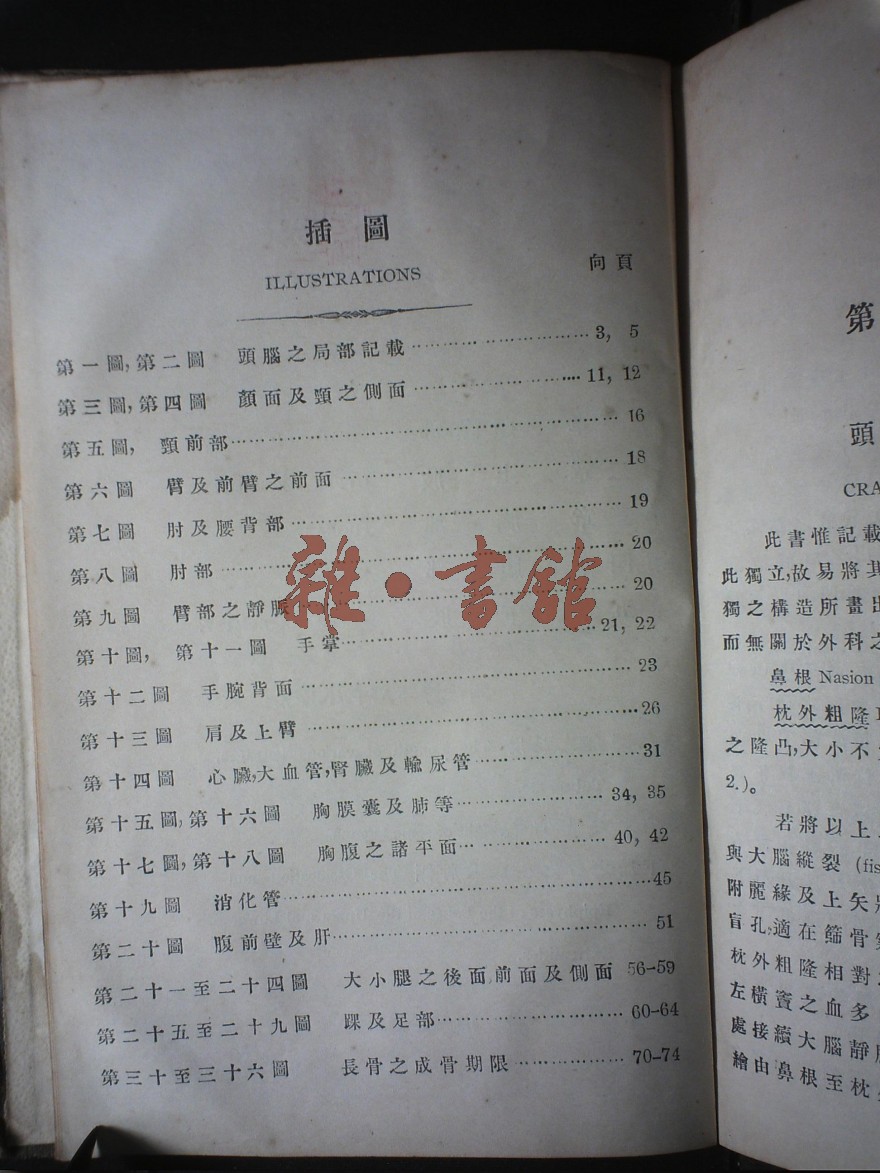 插圖
ILLUSTRATIONS
向頁
第一圖,第二圖 頭腦之局部記載 3, 5
第三圖,第四圖 顏面及頸之側面 11, 12
第五圖, 頸前部 16
第六圖 臂及前臂之前面 18
第七圖 肘及腰背部 19
第八圖 肘部 20
第九圖 臂部之靜脈 20
第十圖, 第十一圖 手掌 21, 22
第十二圖 手腕背面 23
第十三圖 肩及上臂 26
第十四圖 心臟,大血管,腎臟及輸尿管 31
第十五圖,第十六圖 胸膜囊及肺等 34, 35
第十七圖,第十八圖 胸腹之諸平面 40, 42
第十九圖 消化管 45
第二十圖 腹前壁及肝 51
第二十一至二十四圖 大小腿之後面前面及側面 56-59
第二十五至二十九圖 踝及足部 60-64
第三十至三十六圖 長骨之成骨期限 70-74
雜·書館
第
頭
CRA
此書惟記載
此獨立,故易將其
獨之構造所畫出
而無關於外科之
鼻根 Nasion
枕外粗隆
之隆凸,大小不
2.)。
若將以上
與大腦縱裂 (fis
附麗緣及上矢
盲孔,適在篩骨
枕外粗隆相對
左橫竇之血多
處接續大腦靜
繪由鼻根至枕